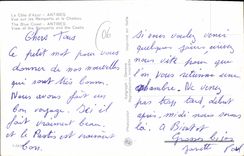 La Côte d'Azur - ANTIBES
Vue sur les Remparts et le Château
The Blue Coast - ANTIBES
View of the Ramparts and the Castle
06
Chers Tous
Ce petit mot pour vous
donner de nos nouvelles
qui sont très bonnes.
Nous avons fait un
bon voyage. Ici il
fait vraiment beau
et le Pastis est vraiment
bon.
Si vous voulez venir
quelques jours,
nous vite pour que
l'on vous retienne une
chambre. Ne venez
pas trop tard, début
après midi nous sommes
là. A Bientôt
Grosses bises